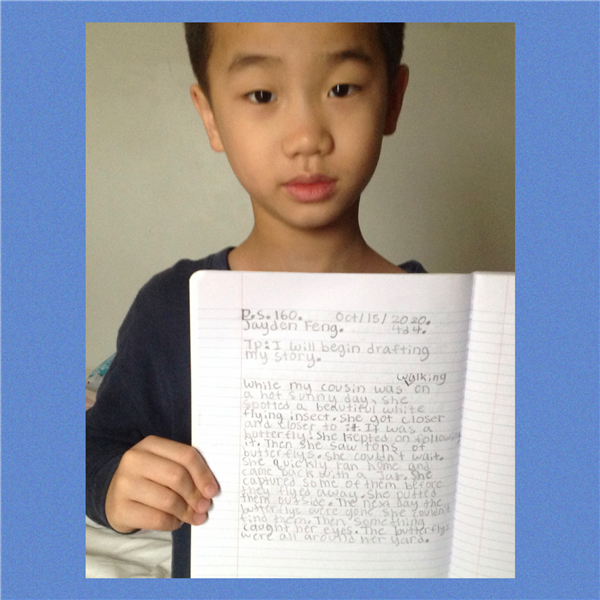 P.S.160. Oct/15/2020.
Jayden Feng. 4d4.
Tp: I will begin drafting
my story.
walking
While my cousin was on
a hot sunny day, she
spotted a beautiful white
flying insect. She got closer
and closer to it. It was a
butterfly. She kepted on following
it. Then she saw tons of
butterflys. She couldn't wait.
She quickly ran home and
came back with a Jar. She
captured some of them before
they flyed away. She putted
them outside. The next day the
butterflys were gone she couldn't
find them. Then something
caught her eyes. The butterflys
were all around her yard.